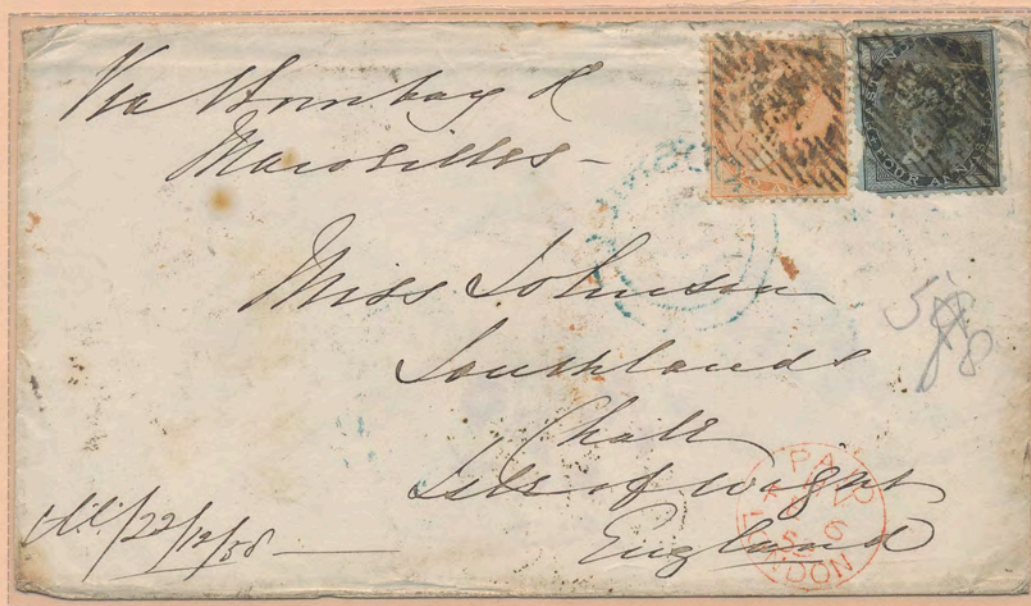 Via Bombay &
Marseilles -
TWO ANNAS
FOUR ANNAS
Miss Johnson
Southlands
Chale
Isle of Wight
England
22/12/58
PAID
6
LONDON